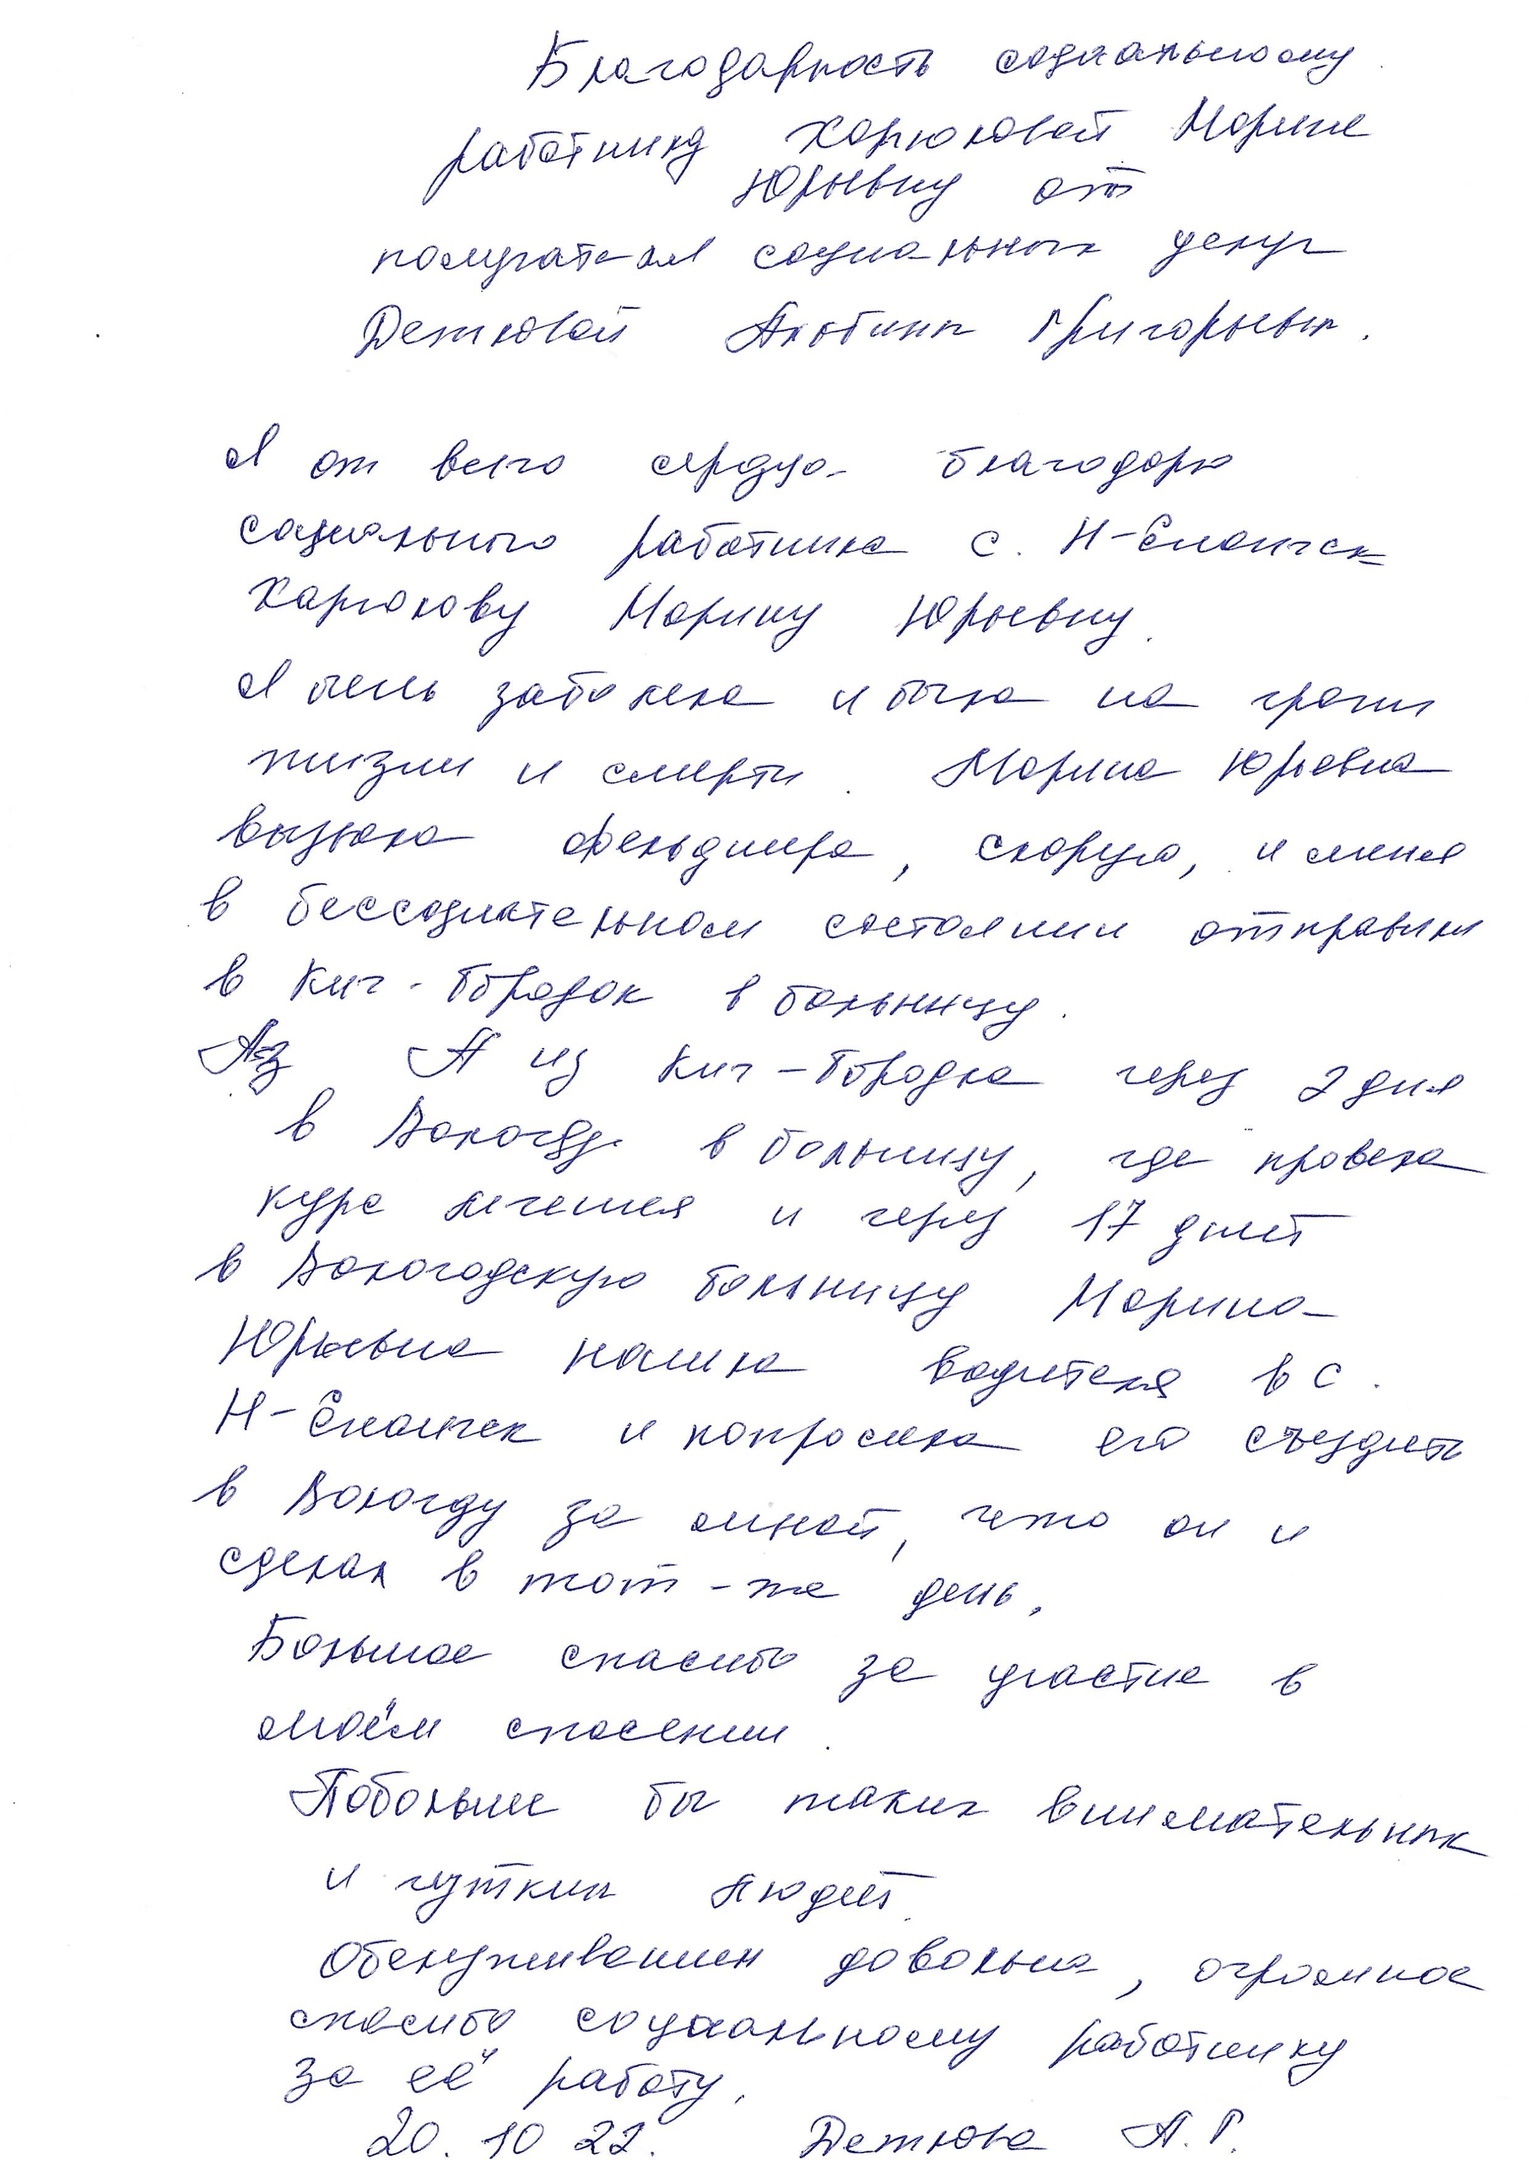 Благодарность социальному
работнику Харюковой Марине
Юрьевну от
получателя социальных услуг
Детковой Альбины Григорьевн.
Я от всего сердца благодарю
социального работника с. Н-Енангск
Харюкову Марину Юрьевну.
Я очень заболела и была на грани
жизни и смерти. Марина Юрьевна
вызвала фельдшера, скорую, и меня
в бессознательном состоянии отправили
в Кич-Городок в больницу.
Я из Кич-Городка через 2 дня
в Вологду в больницу, где провела
курс лечения и через 17 дней
в Вологодскую больницу Марина
Юрьевна нашла водителя в с.
Н-Енангск и попросила его съездить
в Вологду за мной, что он и
сделал в тот-же день.
Большое спасибо за участие в
моём спасении.
Побольше бы таких внимательных
и чутких людей.
Обслуживанием довольна, огромное
спасибо социальному работнику
за её работу.
20.10 22. Деткова А.Г.